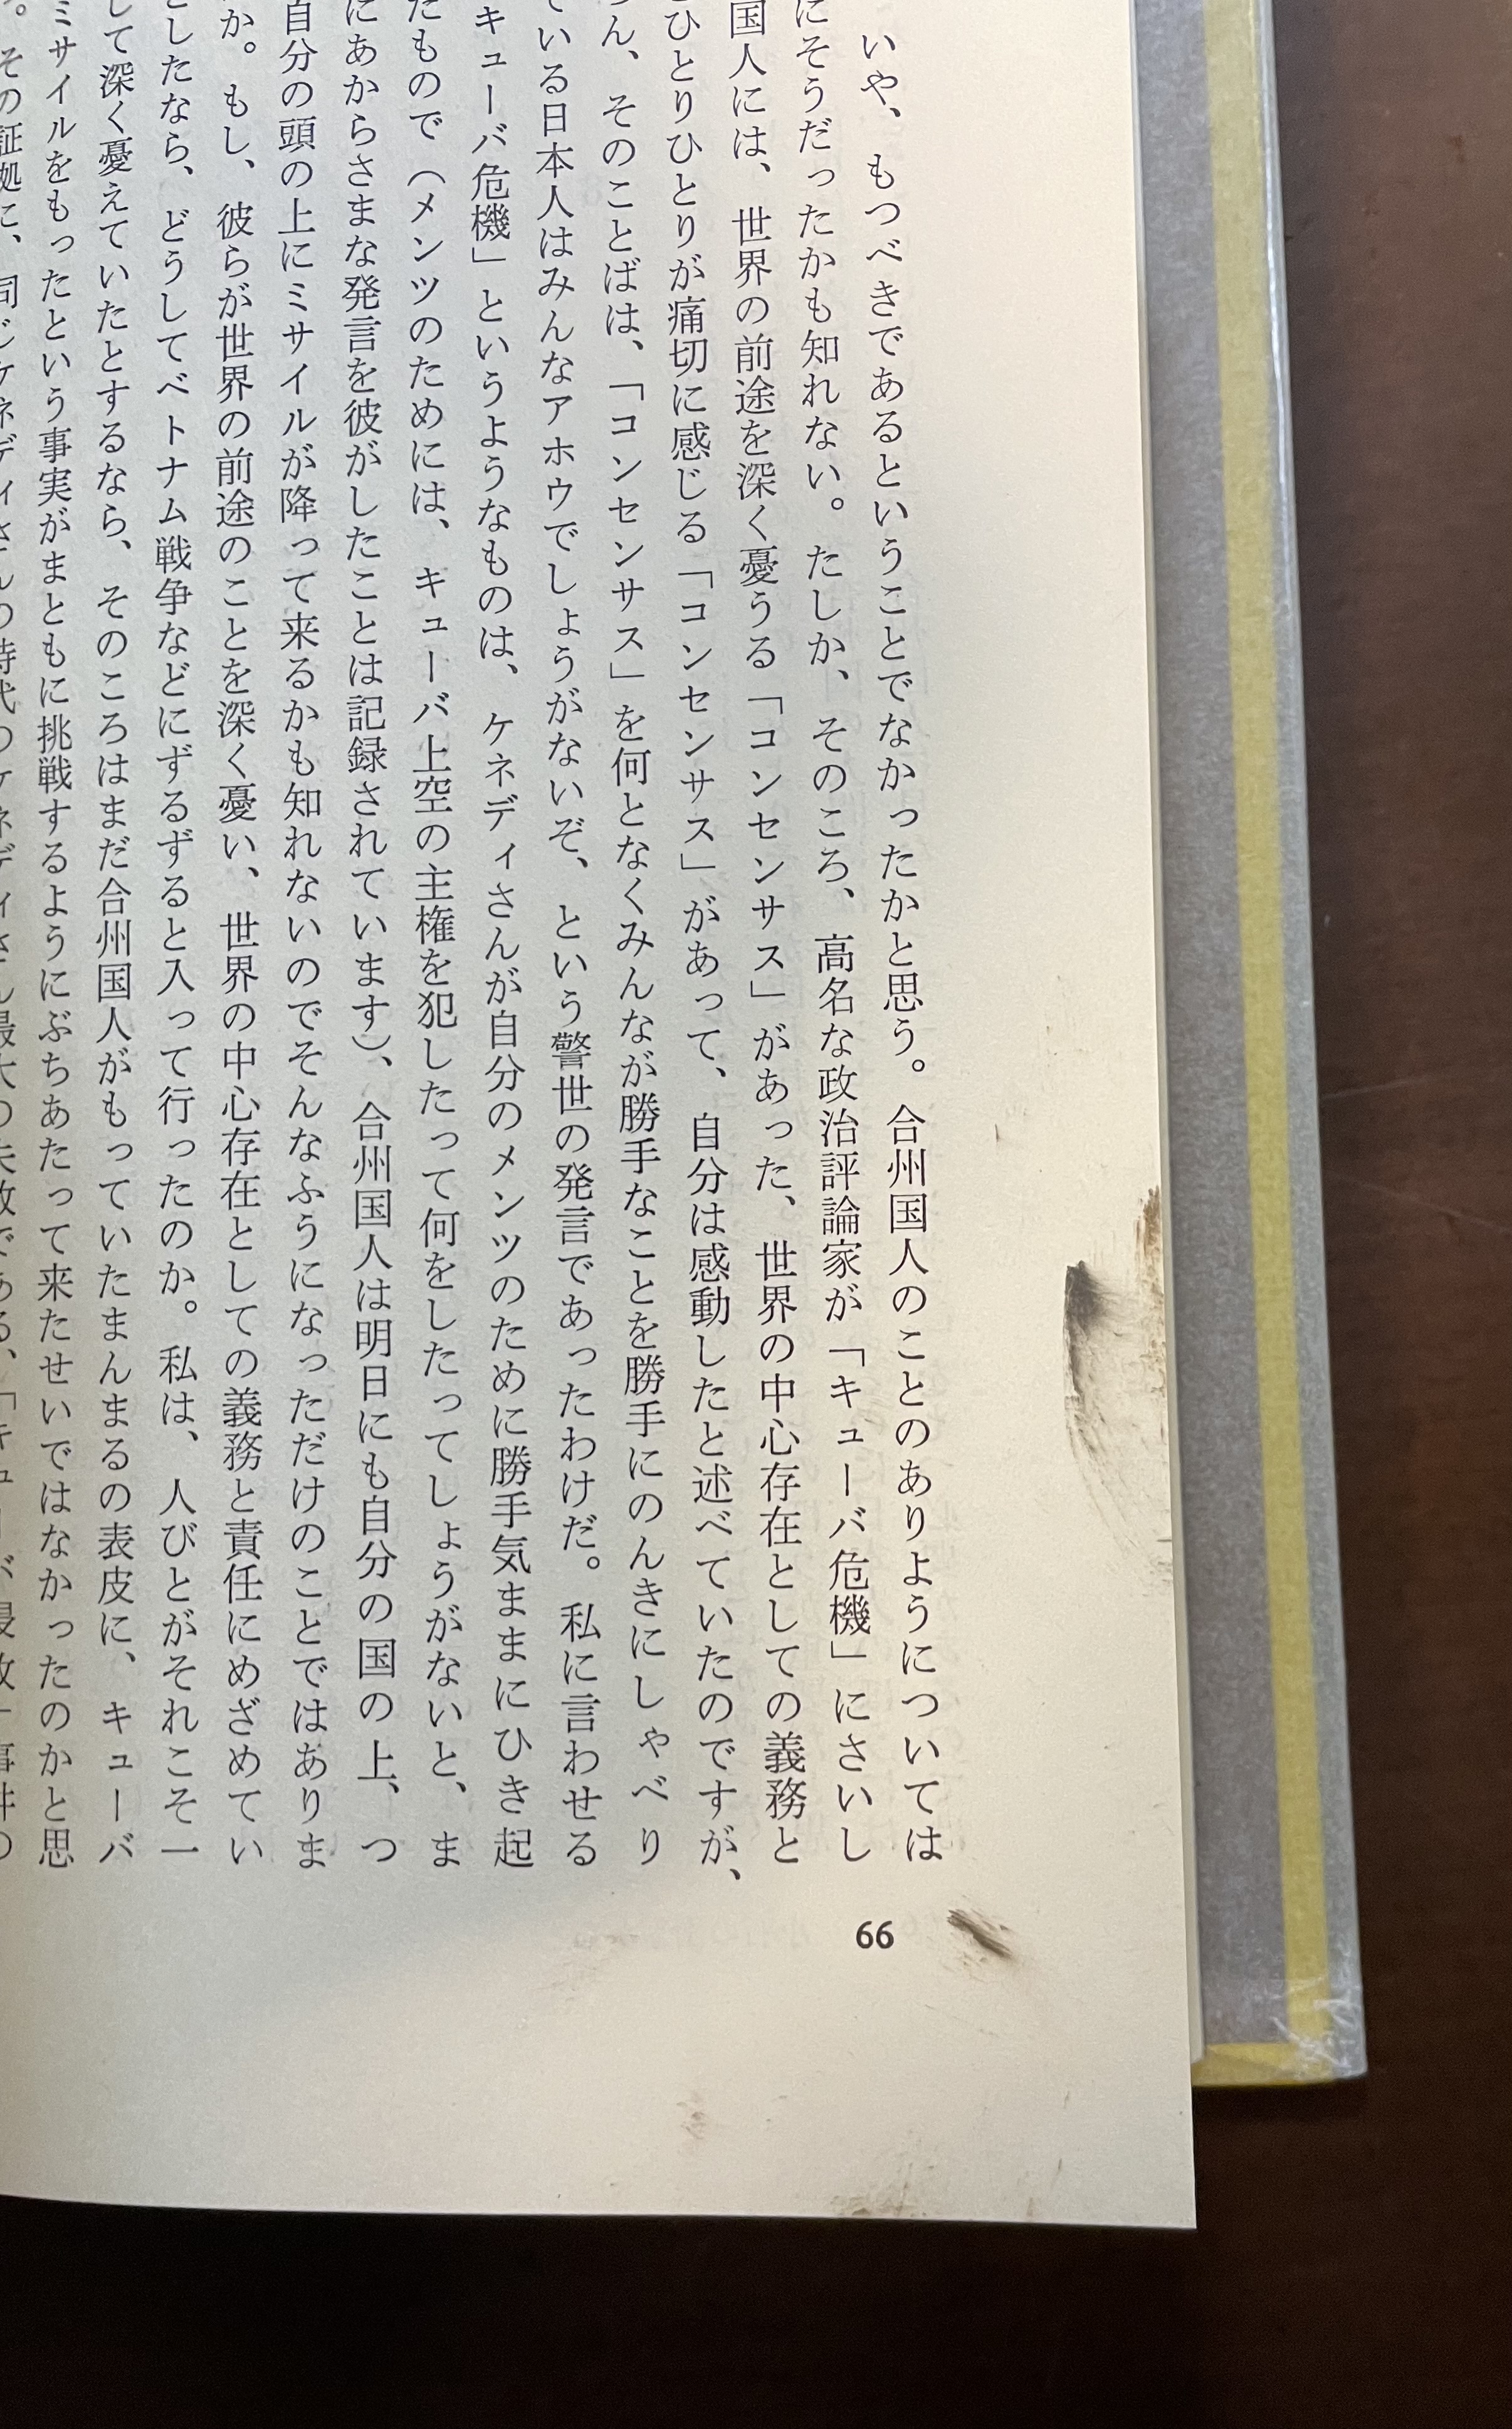 いや、もつべきであるということでなかったかと思う。合州国人のことのありようについては
にそうだったかも知れない。たしか、そのころ、高名な政治評論家が「キューバ危機」にさいし
国人には、世界の前途を深く憂うる「コンセンサス」があった、世界の中心存在としての義務と
ひとりひとりが痛切に感じる「コンセンサス」があって、自分は感動したと述べていたのですが、
ん、そのことばは、「コンセンサス」を何となくみんなが勝手なことを勝手にのんきにしゃべり
ている日本人はみんなアホウでしょうがないぞ、という警世の発言であったわけだ。私に言わせる
キューバ危機」というようなものは、ケネディさんが自分のメンツのために勝手気ままにひき起
たもので（メンツのためには、キューバ上空の主権を犯したって何をしたってしょうがないと、ま
にあからさまな発言を彼がしたことは記録されています）、合州国人は明日にも自分の国の上、つ
自分の頭の上にミサイルが降って来るかも知れないのでそんなふうになっただけのことではありま
か。もし、彼らが世界の前途のことを深く憂い、世界の中心存在としての義務と責任にめざめてい
としたなら、どうしてベトナム戦争などにずるずると入って行ったのか。私は、人びとがそれこそ一
して深く憂えていたとするなら、そのころはまだ合州国人がもっていたまんまるの表皮に、キューバ
ミサイルをもったという事実がまともに挑戦するようにぶちあたって来たせいではなかったのかと思
。その証拠に、同じケネディさんの時代のケネディさん最大の失敗である、「キューバ侵攻」事件の
66